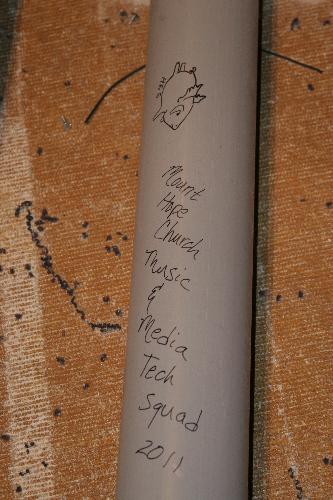 Mount
Hope
Church
Music
&
Media
Tech
Squad
2011